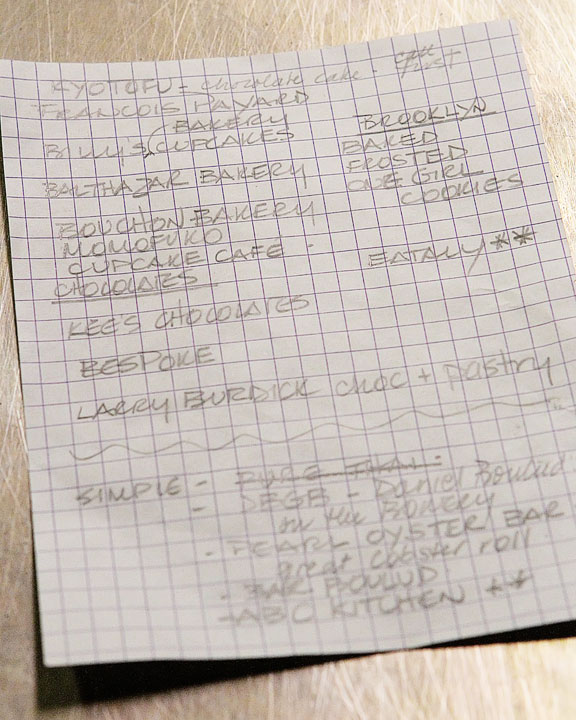 KYOTOFU - chocolate cake - call first
FRANCOIS PAYARD
BAKERY
BILLY'S CUPCAKES
BALTHAZAR BAKERY
BOUCHON BAKERY
MOMOFUKO
CUPCAKE CAFE -
CHOCOLATES
KEE'S CHOCOLATES
BESPOKE
LARRY BURDICK choc + pastry
BROOKLYN
BAKED
FROSTED
ONE GIRL
COOKIES
EATALY **
SIMPLE - PURE THAI -
- DBGB - Daniel Boulud
in the Bowery
- PEARL OYSTER BAR
great lobster roll
- BAR BOULUD
- ABC KITCHEN **